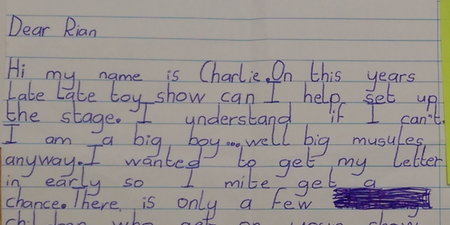 Dear Rian
Hi my name is Charlie.On this years
Late Late toy show can I help set up
the stage. I understand if I can't.
I am a big boy...well big musules
anyway.I wanted to get my letter
in early so I mite get a
chance.There is only a few
children who get on your show